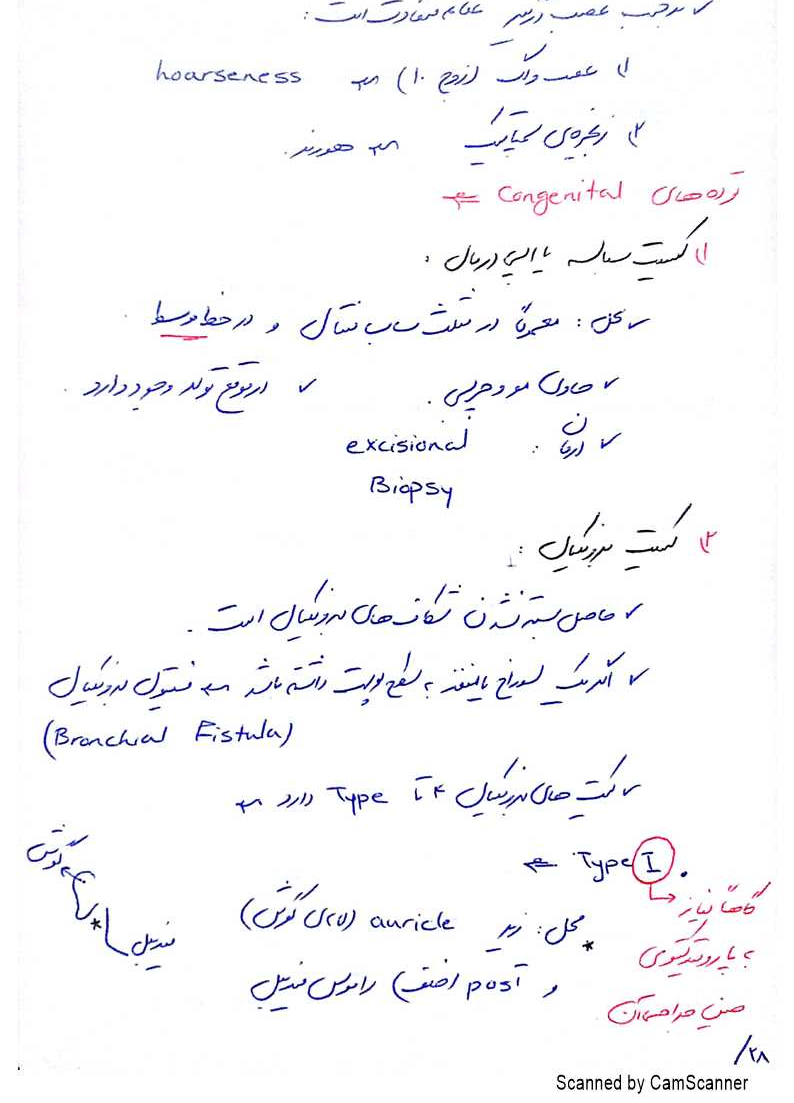 ✓ برحسب عصب درگیر علائم متفاوت است :
۱) عصب واگ (زوج ۱۰) ← hoarseness
۲) زنجیره‌ی سمپاتیک ← هورنر.
توده‌های Congenital ⇐
۱) کیست سباسه یا اپی درمال :
✓ محل : معمولاً در مثلث ساب منتال و در خط وسط.
✓ حاوی مو و چربی . ✓ از موقع تولد وجود دارد .
✓ درمان : excisional
Biopsy
۲) کیست برونکیال :
✓ حاصل بسته نشدن شکاف‌های برونکیال است .
✓ اگر یک سوراخ یا منفذ به سطح پوست داشته باشد ← فیستول برونکیال
(Bronchial Fistula)
✓ کیست های برونکیال ۴ تا Type دارد ←
• Type I ⇐
گاهاً نیاز
به پاروتیدکتومی
حین جراحی آن.
* محل : زیر auricle (لاله‌ی گوش)
و post (خلف) راموس مندیبل
گوش
*
مندیبل
۲۸/
Scanned by CamScanner